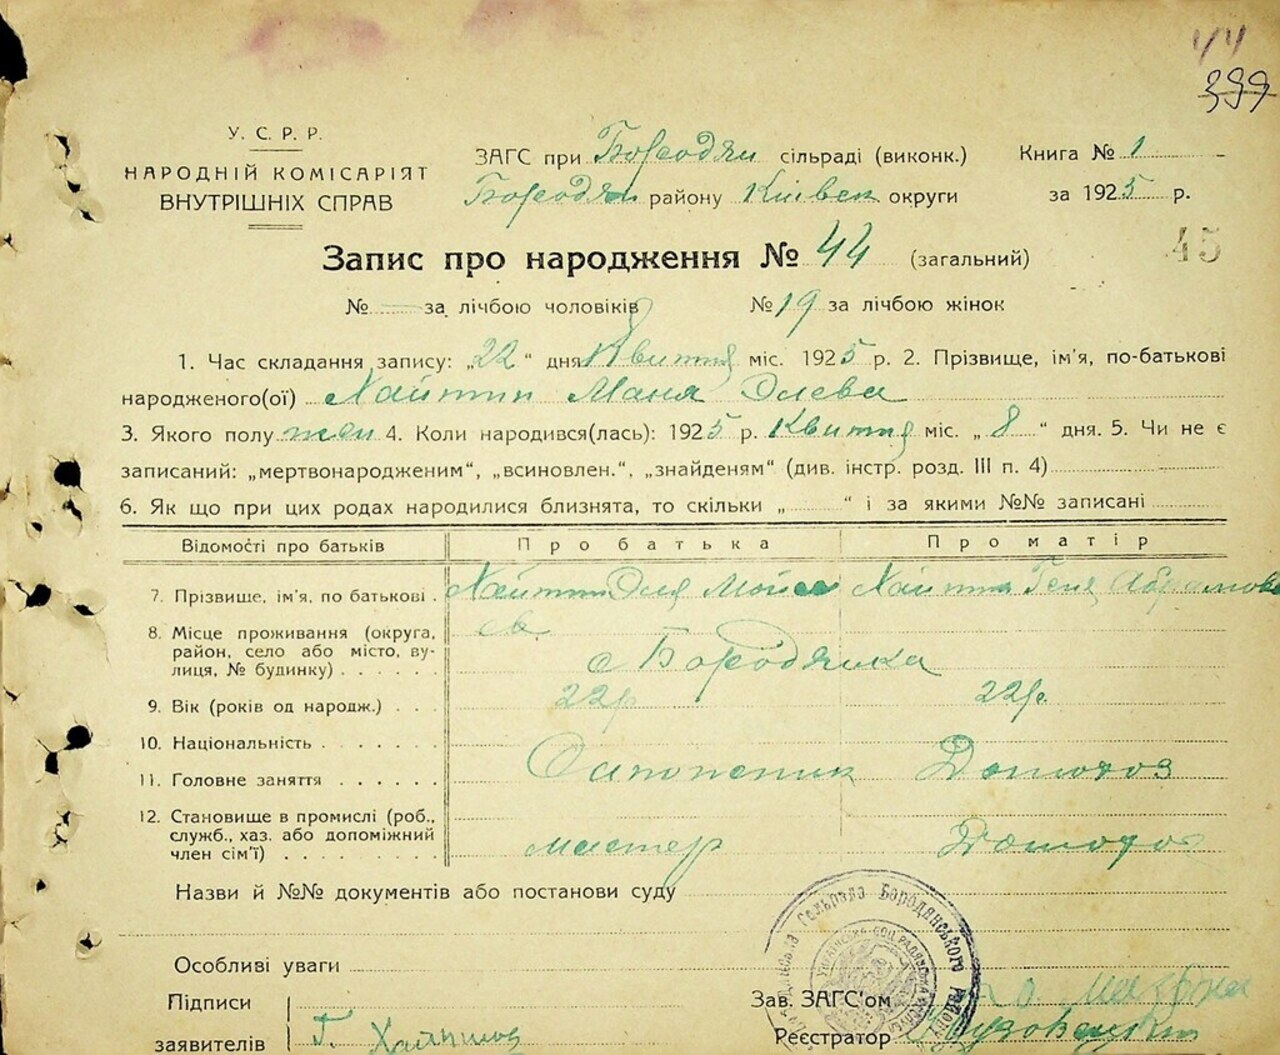 44
399
У. С. Р. Р.
НАРОДНІЙ КОМІСАРІЯТ
ВНУТРІШНІХ СПРАВ
ЗАГС при Бородян сільраді (виконк.)
Бородян району Київськ округи
Книга № 1
за 1925 р.
45
Запис про народження № 44 (загальний)
№ — за лічбою чоловіків № 19 за лічбою жінок
1. Час складання запису: „22" дня Квиттня міс. 1925 р. 2. Прізвище, ім'я, по-батькові
народженого(ої) Хайтин Маня Элева
3. Якого полу жен 4. Коли народився(лась): 1925 р. Квиття міс. „8" дня. 5. Чи не є
записаний: „мертвонародженим", „всиновлен.", „знайденям" (див. інстр. розд. III п. 4)
6. Як що при цих родах народилися близнята, то скільки „ " і за якими №№ записані
Відомості про батьків Про батька Про матір
7. Прізвище, ім'я, по батькові Хайтин Эля Мойсе Хайтин Геня Абрамова
ев
8. Місце проживання (округа,
район, село або місто, ву-
лиця, № будинку) с Бородянка
9. Вік (років од народж.) 22р 22р.
10. Національність
11. Головне заняття Сапожник Домохоз
12. Становище в промислі (роб.,
служб., хаз. або допоміжний
член сім'ї) мастер Домохоз
Назви й №№ документів або постанови суду
Особливі уваги
Підписи
заявителів Г. Хайтин
Зав. ЗАГС'ом
Реєстратор
Сільрада Бородянського району